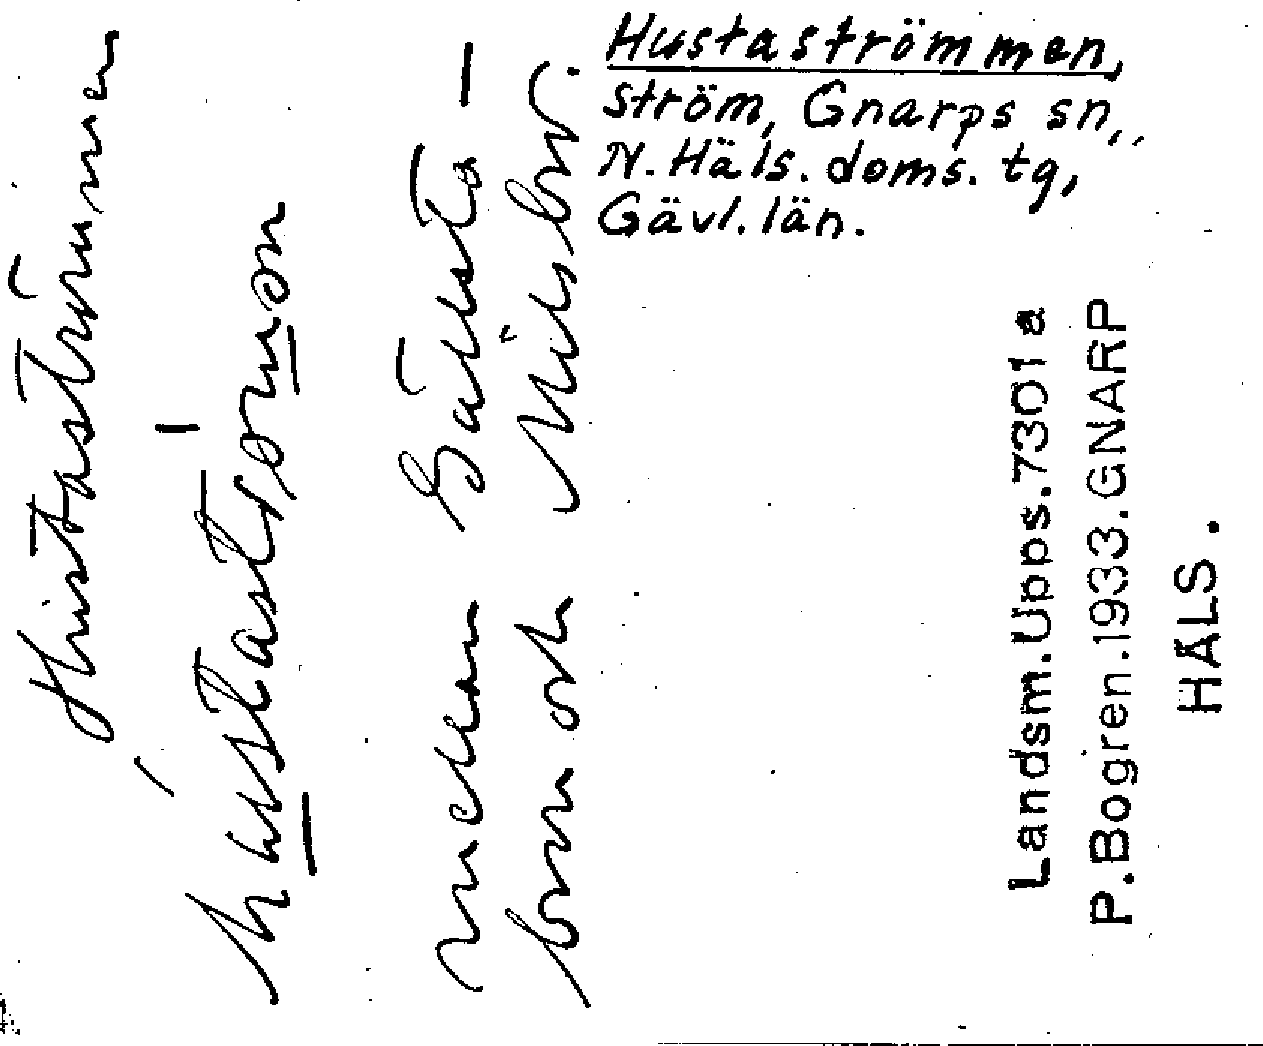 Hustaströmmen,
ström, Gnarps sn,
N. Häls. doms. tg,
Gävl. län.
Hustaströmmen
mellan Gällsta-
bron och
Landsm. Upps. 7301 a
P. Bogren. 1933. GNARP
HÄLS.